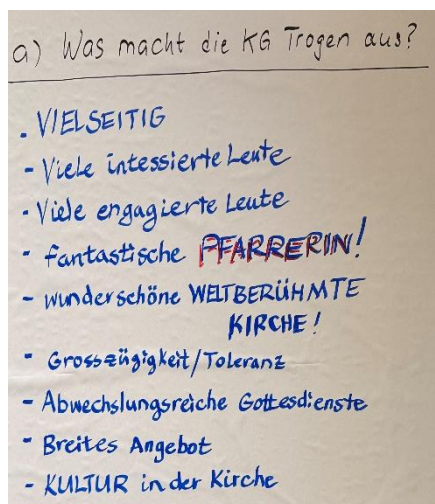 a) Was macht die KG Trogen aus?
. VIELSEITIG
- Viele intessierte Leute
- Viele engagierte Leute
- fantastische PFARRERIN!
- wunderschöne WELTBERÜHMTE
KIRCHE!
- Grosszügigkeit/Toleranz
- Abwechslungsreiche Gottesdienste
- Breites Angebot
- KULTUR in der Kirche